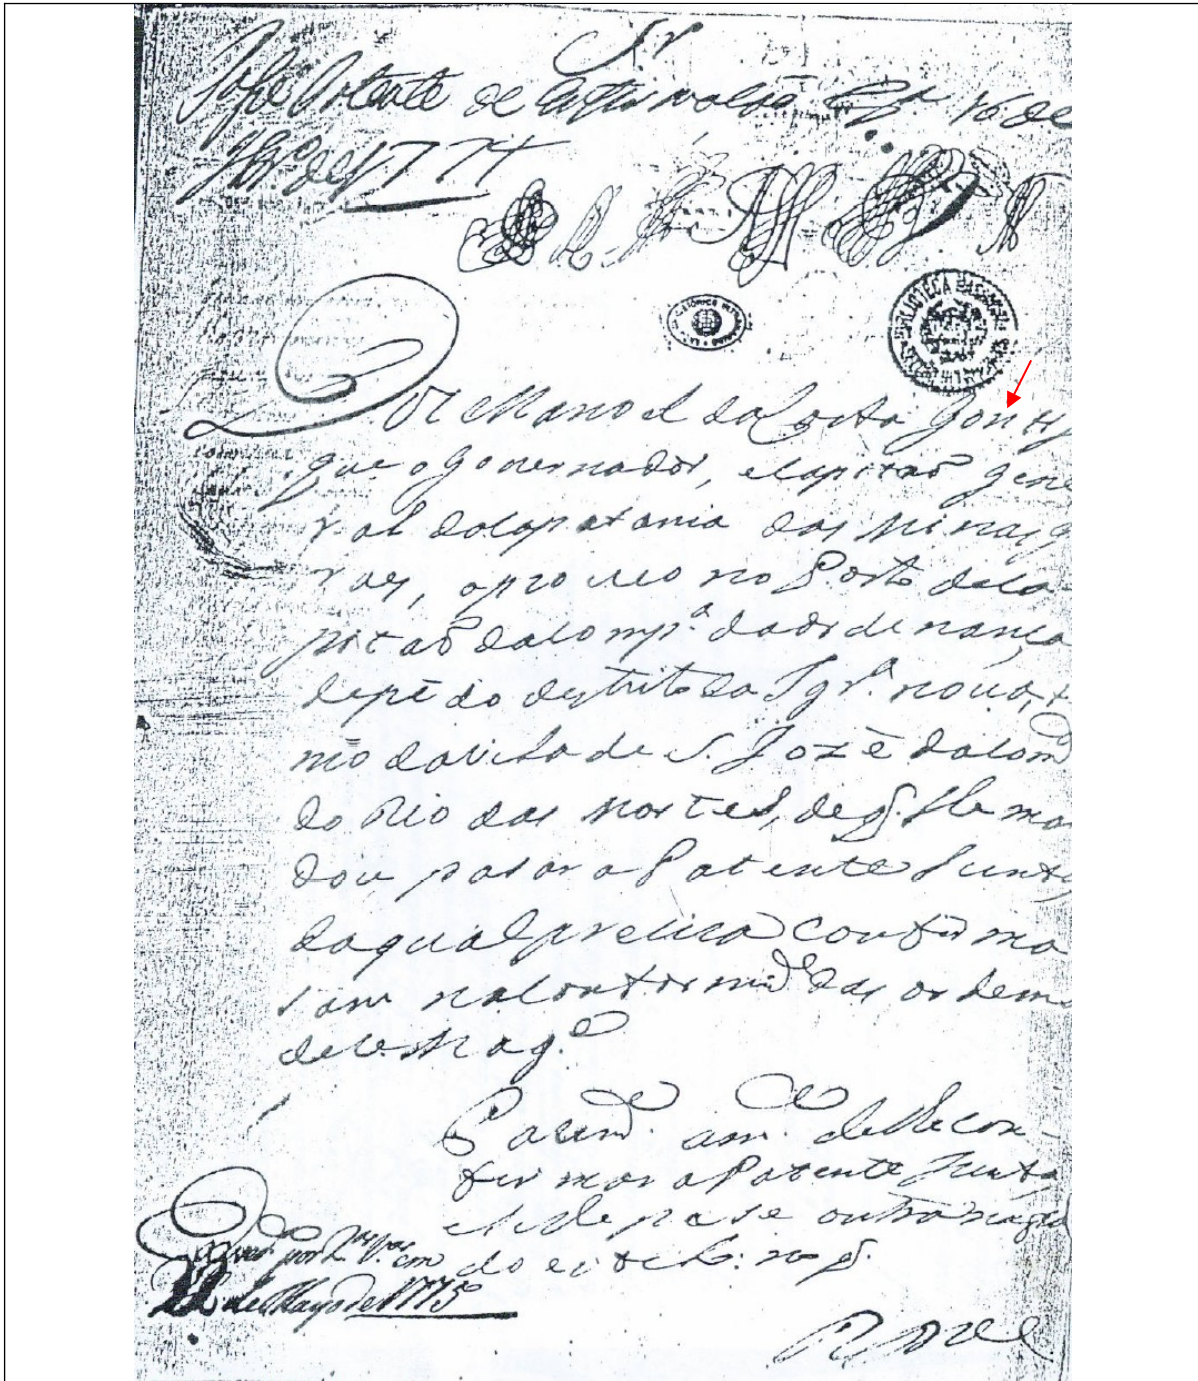 Sr
Passe Patente de Confirmação Lxª 16 de
de 1774
BIBLIOTECA NACIONAL
HISTÓRICO ULTRAMARINO
Diz Manoel da Costa Gontij
que o Governador, e Capitaõ Gene
ral da Capitania das Minas g
raes, o proveo no Posto de Ca
pitaõ da Compª. da ordenança
de pé do destrito da Igrª. nova, ter
mo da villa de S. Jozè da Com
do Rio das Mortes, de q. se lhe man
dou pasar a Patente Junta
da qual precisa Confirma
sam na Conformide. das ordems
de V. Mage.
P. a V. Mag. de lhe con
firmar a Patente Junta
e se lhe pase outra na fr
do estillo:
por em
de Mayo de 1775
R M ce